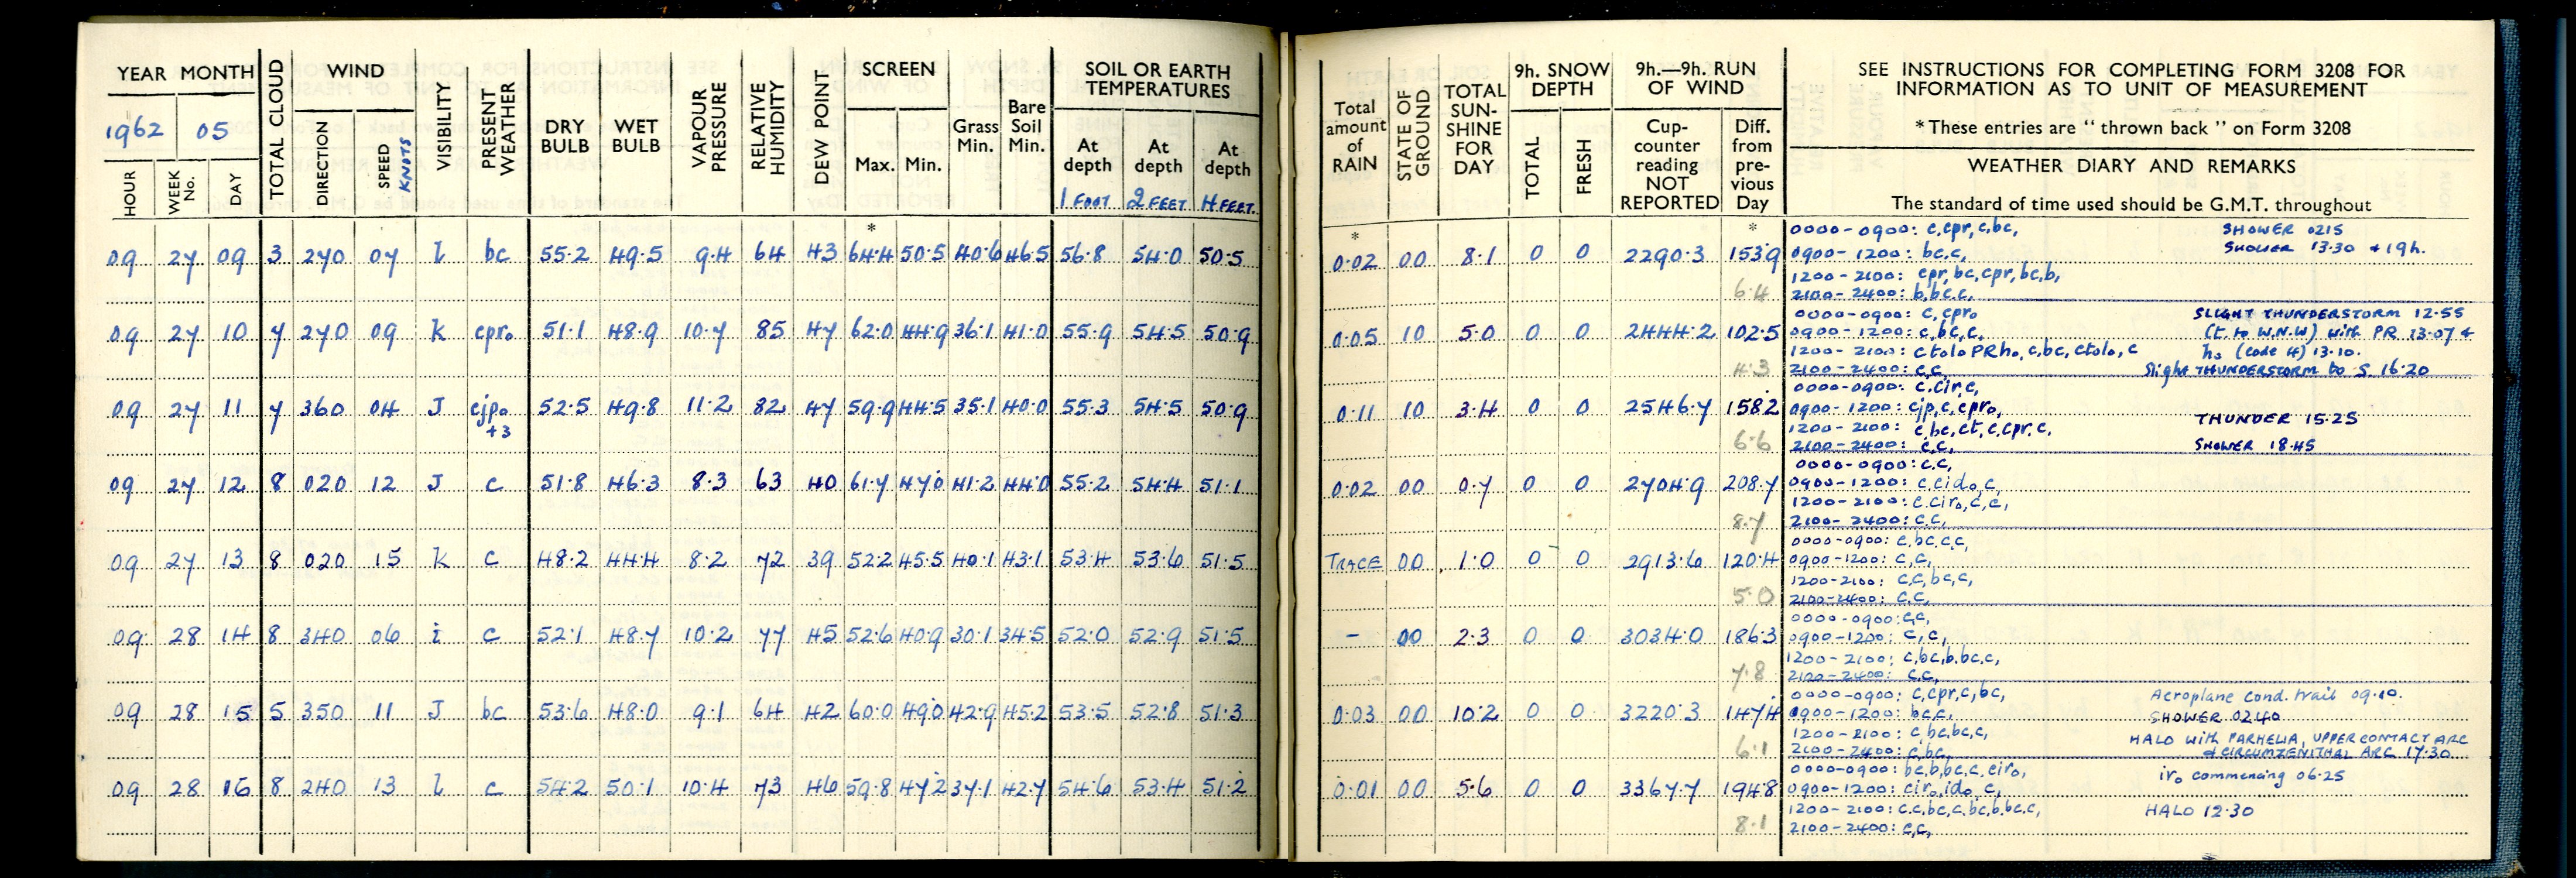 YEAR MONTH TOTAL CLOUD WIND VISIBILITY PRESENT WEATHER DRY BULB WET BULB VAPOUR PRESSURE RELATIVE HUMIDITY DEW POINT SCREEN Grass Min. Bare Soil Min. SOIL OR EARTH TEMPERATURES
1962 05
HOUR WEEK No. DAY DIRECTION SPEED KNOTS Max. Min. At depth At depth At depth
1 FOOT 2 FEET 4 FEET
*
09 27 09 3 270 07 l bc 55.2 49.5 9.4 64 43 64.4 50.5 40.6 46.5 56.8 54.0 50.5
09 27 10 7 270 09 k cpro 51.1 48.9 10.7 85 47 62.0 44.9 36.1 41.0 55.9 54.5 50.9
09 27 11 7 360 04 J cjpo 52.5 49.8 11.2 82 47 59.9 44.5 35.1 40.0 55.3 54.5 50.9
+3
09 27 12 8 020 12 J c 51.8 46.3 8.3 63 40 61.7 47.0 41.2 44.0 55.2 54.4 51.1
09 27 13 8 020 15 k c 48.2 44.4 8.2 72 39 52.2 45.5 40.1 43.1 53.4 53.6 51.5
09 28 14 8 340 06 i c 52.1 48.7 10.2 77 45 52.6 40.9 30.1 34.5 52.0 52.9 51.5
09 28 15 5 350 11 J bc 53.6 48.0 9.1 64 42 60.0 49.0 42.9 45.2 53.5 52.8 51.3
09 28 16 8 240 13 l c 54.2 50.1 10.4 73 46 59.8 47.2 37.1 42.7 54.6 53.4 51.2
Total amount of RAIN STATE OF GROUND TOTAL SUN-SHINE FOR DAY 9h. SNOW DEPTH TOTAL FRESH 9h.—9h. RUN OF WIND Cup-counter reading NOT REPORTED Diff. from pre-vious Day
SEE INSTRUCTIONS FOR COMPLETING FORM 3208 FOR
INFORMATION AS TO UNIT OF MEASUREMENT
* These entries are " thrown back " on Form 3208
WEATHER DIARY AND REMARKS
The standard of time used should be G.M.T. throughout
* *
0000-0900: c,cpr,c,bc, SHOWER 0215
0.02 00 8.1 0 0 2290.3 153.9 0900-1200: bc,c, SHOWER 13.30 + 19h.
1200-2100: cpr,bc,cpr,bc,b,
6.4 2100-2400: b,bc,c,
0000-0900: c,cpro SLIGHT THUNDERSTORM 12.55
0.05 10 5.0 0 0 2444.2 102.5 0900-1200: c,bc,c, (t. to W.N.W) with PR 13.07 +
1200-2100: ctolo PRho, c,bc, ctolo, c ho (code 4) 13.10.
4.3 2100-2400: c,c, Slight THUNDERSTORM to S. 16.20
0000-0900: c,cir,c,
0.11 10 3.4 0 0 2546.7 158.2 0900-1200: cjp,c,cpro, THUNDER 15.25
1200-2100: c,bc,ct,c,cpr,c,
6.6 2100-2400: c,c, SHOWER 18.45
0000-0900: c,c,
0.02 00 0.7 0 0 2704.9 208.7 0900-1200: c,cido,c,
1200-2100: c,ciro,c,c,
8.7 2100-2400: c,c,
0000-0900: c,bc,c,c,
TRACE 00 1.0 0 0 2913.6 120.4 0900-1200: c,c,
1200-2100: c,c,bc,c,
5.0 2100-2400: c,c,
0000-0900: c,c,
- 00 2.3 0 0 3034.0 186.3 0900-1200: c,c,
1200-2100: c,bc,b,bc,c,
7.8 2100-2400: c,c,
0000-0900: c,cpr,c,bc, Aeroplane Cond. trail 09.10.
0.03 00 10.2 0 0 3220.3 147.4 0900-1200: bc,c, SHOWER 0240
1200-2100: c,bc,bc,c, HALO with PARHELIA, UPPER CONTACT ARC
6.1 2100-2400: c,bc, & CIRCUMZENITHAL ARC 17.30
0000-0900: bc,b,bc,c,ciro, iro commencing 06.25
0.01 00 5.6 0 0 3367.7 194.8 0900-1200: ciro,ido,c,
1200-2100: c,c,bc,c,bc,b,bc,c, HALO 12.30
8.1 2100-2400: c,c,